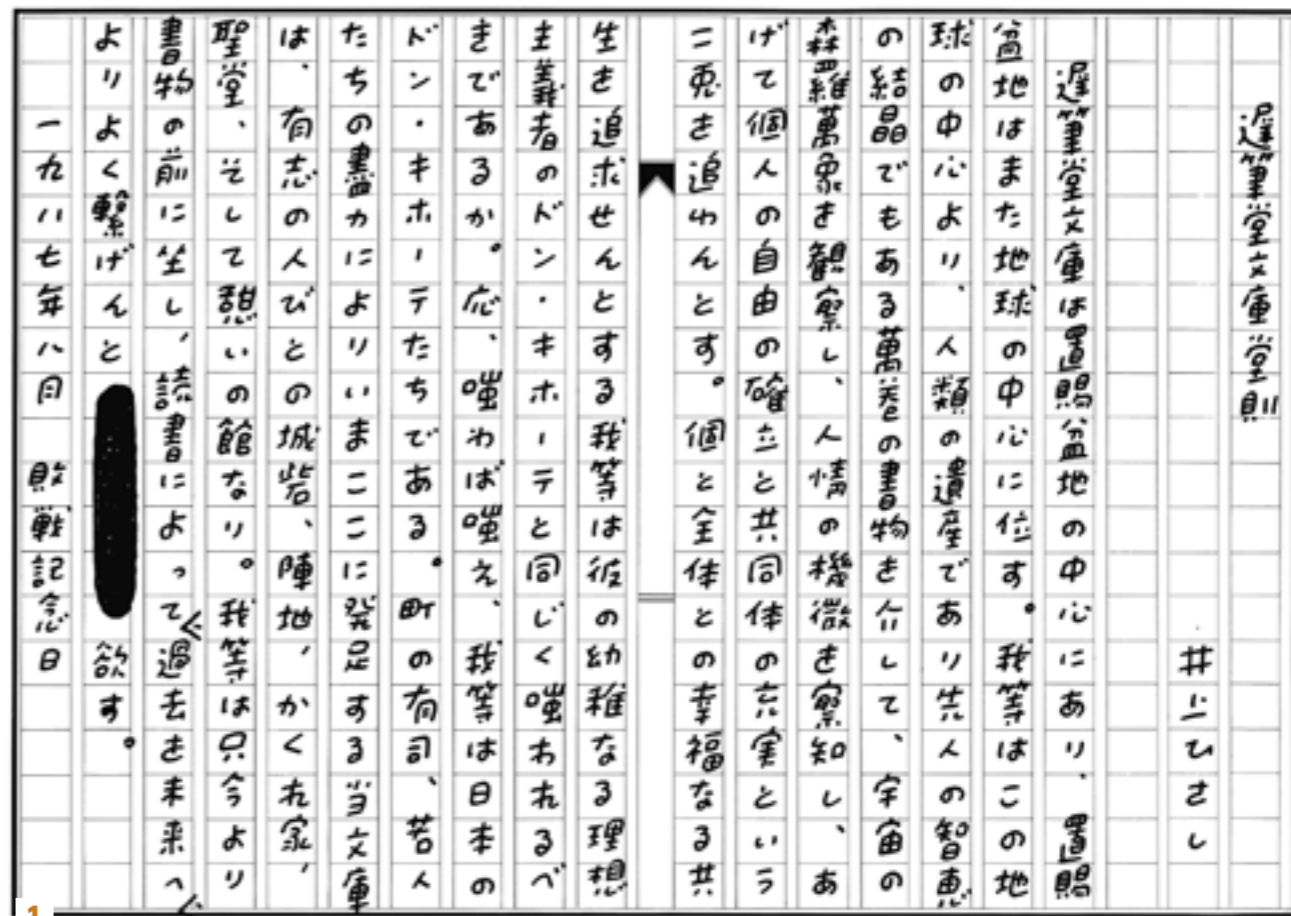 遅筆堂文庫堂則
井上ひさし
遅筆堂文庫は置賜盆地の中心にあり、置賜
盆地はまた地球の中心に位す。我等はこの地
球の中心より、人類の遺産であり先人の智恵
の結晶でもある萬巻の書物を介して、宇宙の
森羅萬象を観察し、人情の機微を察知し、あ
げて個人の自由の確立と共同体の充実という
二兎を追わんとす。個と全体との幸福なる共
生を追求せんとする我等は彼の幼稚なる理想
主義者のドン・キホーテと同じく嗤われるべ
きであるか。応、嗤わば嗤え、我等は日本の
ドン・キホーテたちである。町の有司、若人
たちの盡力によりいまここに発足する当文庫
は、有志の人びとの城砦、陣地、かくれ家、
聖堂、そして憩いの館なり。我等は只今より
書物の前に坐し、読書によって過去を未来へ
よりよく繋げんと欲す。
一九八七年八月　敗戦記念日
1